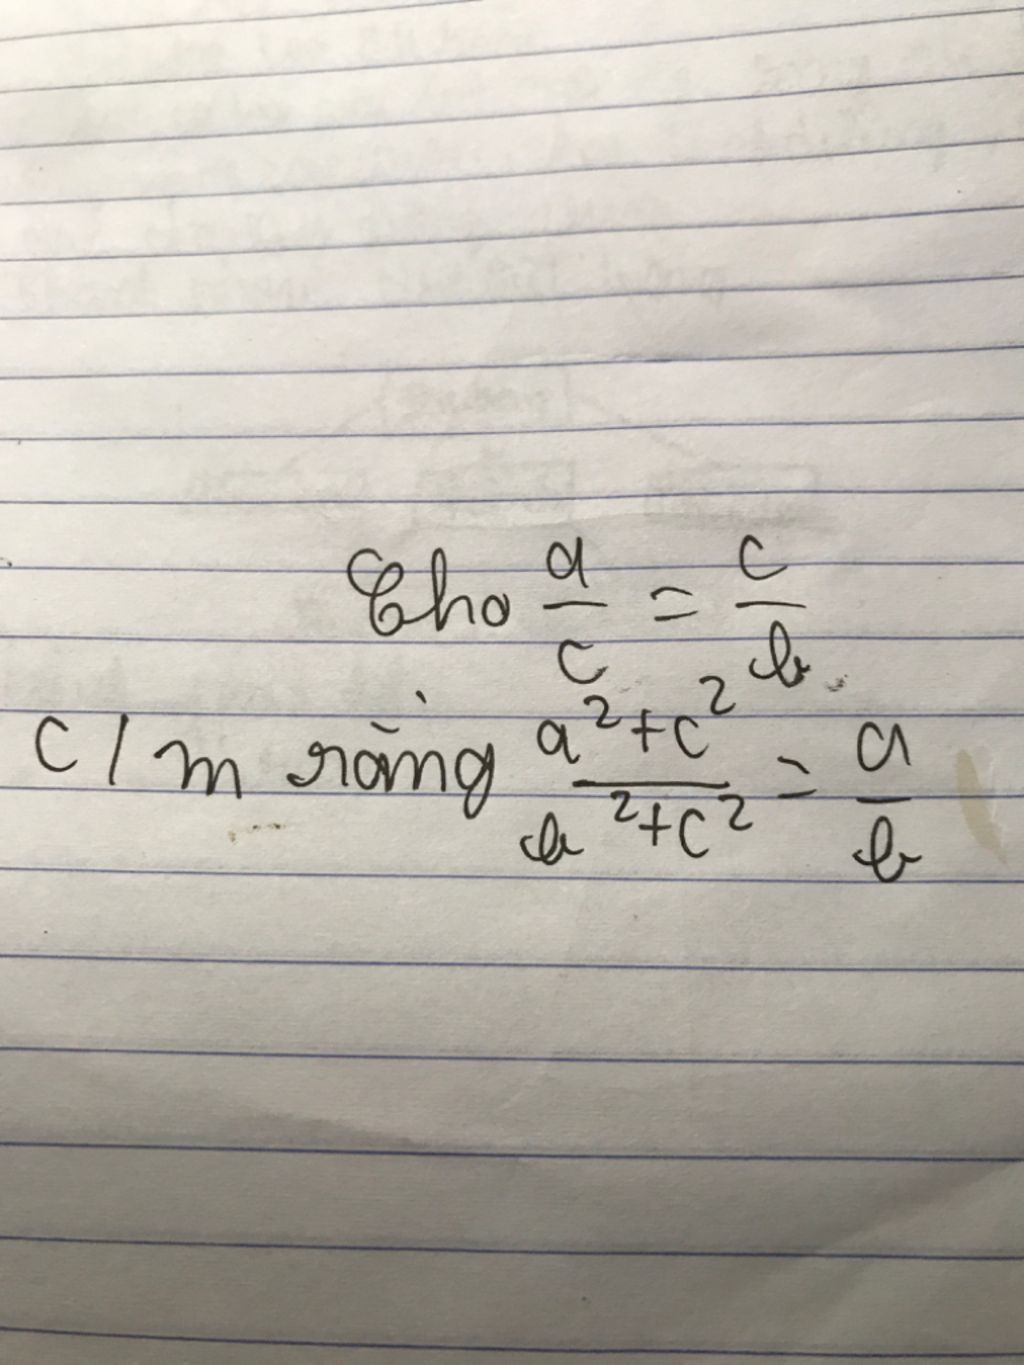 Cho a/c = c/b.
C/m rằng a²+c²/b²+c² = a/b